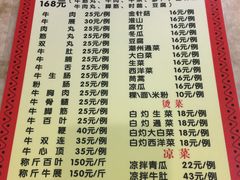 168元
牛肉丸、脚筋
金针菇 16元/例
淮山 16元/例
腐竹 16元/例
冬瓜 16元/例
豆腐 16元/例
潮州通菜 16元/例
大白菜 16元/例
生菜 16元/例
西洋菜 16元/例
茼蒿 16元/例
凉瓜 16元/例
粿/面/米粉 10元/例
烫菜
白灼生菜 18元/例
白灼通菜 18元/例
白灼大白菜 18元/例
白灼西洋菜 18元/例
凉菜
凉拌青瓜 22元/例
凉拌牛肚 43元/例
牛肉 25元/例
牛筋丸 25元/例
牛肉丸 25元/例
双丸 25元/例
牛肚 25元/例
牛腩 25元/例
牛舌 25元/例
牛生肠 25元/例
牛肝 25元/例
粉肠 25元/例
牛胸肉 25元/例
牛骨髓 25元/例
牛脚筋 25元/例
牛百叶 25元/例
牛鞭 40元/例
牛双连 35元/例
牛心顶 35元/例
称斤百叶 150元/斤
称斤牛展 150元/斤